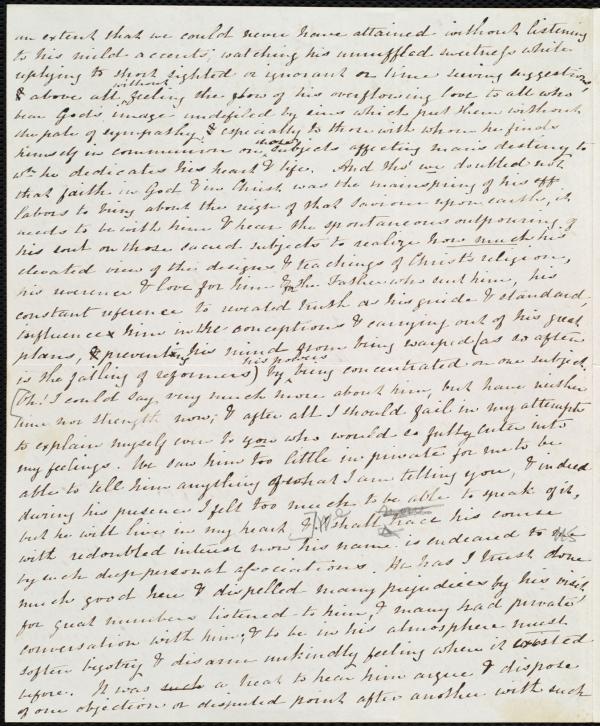 an extent that we could never have attained without listening
to his mild accents, watching his unruffled sweetness while
replying to short sighted or ignorant or time serving suggestions,
& above all without feeling the glow of his overflowing love to all who
bear God's image undefiled by sins which put them without
the pale of sympathy, & especially to those with whom he finds
himself in communion on those subjects affecting man's destiny to
wh he dedicates his heart & life. And tho' we doubted not
that faith in God & in Christ was the mainspring of his eff
labors to bring about the reign of that Saviour upon earth, it
needs to be with him & hear the spontaneous outpouring of
his soul on those sacred subjects to realize how much his
elevated view of the designs & teachings of Christ's religion,
his reverence & love for him & the Father who sent him, his
constant reference to revealed truth as his guide & standard,
influence him in the conceptions & carrying out of his great
plans, & preventing his mind from being warped (as so often
is the failing of reformers) by his powers being concentrated on one subject.
Oh! I could say very much more about him, but have neither
time nor strength now; & after all I should fail in my attempt
to explain myself even to you who would so fully enter into
my feelings. We saw him too little in private for me to be
able to tell him anything of what I am telling you, & indeed
during his presence I felt too much to be able to speak of it,
but he will live in my heart & we shall trace his course
with redoubled interest now his name is endeared to us
by such deep personal associations. He has I trust done
much good here & dispelled many prejudices by his visit,
for great numbers listened to him, & many had private
conversation with him; & to be in his atmosphere must
soften bigotry & disarm unkindly feeling where it existed
before. It was such a treat to hear him argue & dispose
of one objection or disputed point after another with such